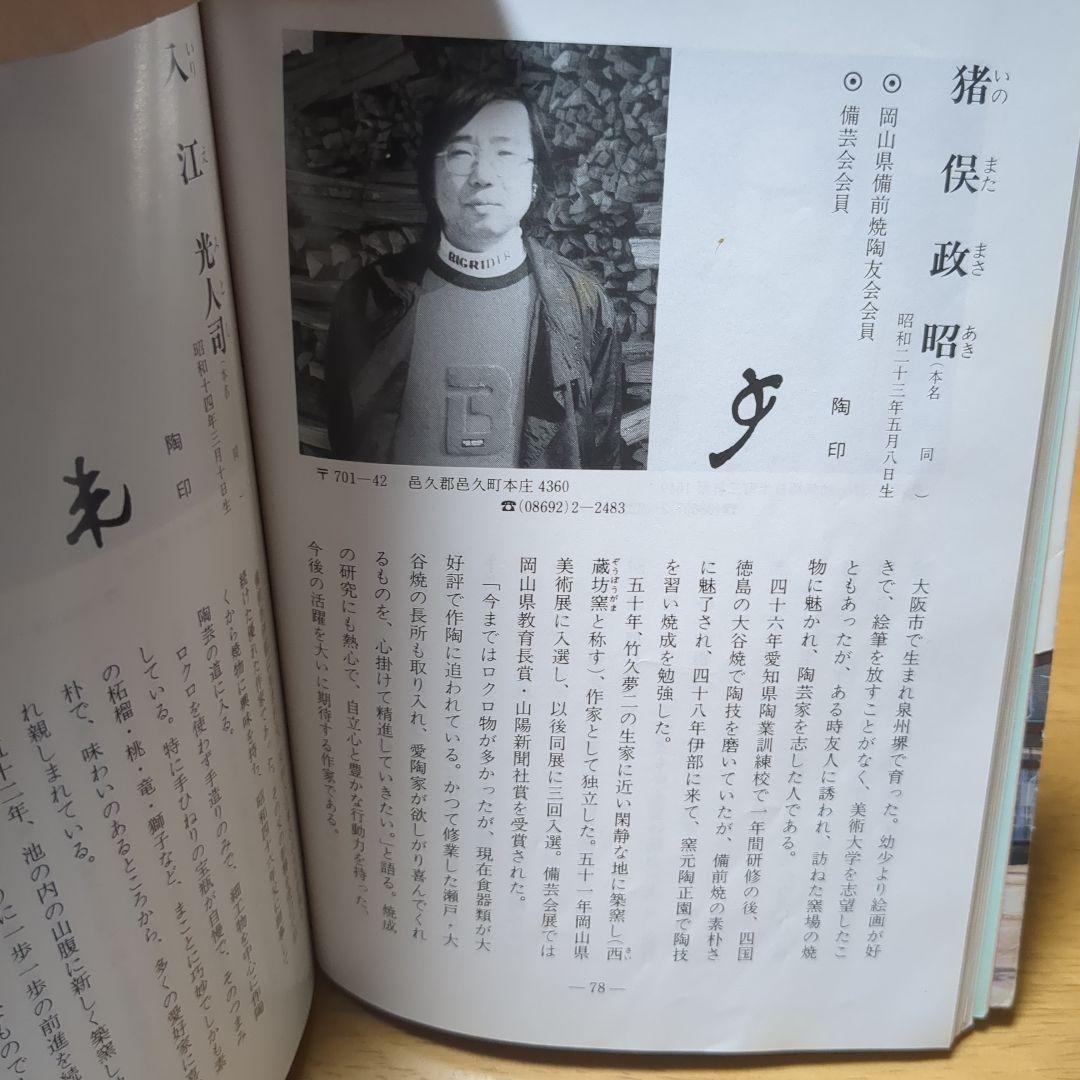 猪俣政昭(本名 同 )
いのまたまさあき
昭和二十三年五月八日生
◉岡山県備前焼陶友会会員
◉備芸会会員
陶印
BIGRIDER
B
〒701―42 邑久郡邑久町本庄4360
☎(08692)2―2483
大阪市で生まれ泉州堺で育った。幼少より絵画が好
きで、絵筆を放すことがなく、美術大学を志望したこ
ともあったが、ある時友人に誘われ、訪ねた窯場の焼
物に魅かれ、陶芸家を志した人である。
四十六年愛知県陶業訓練校で一年間研修の後、四国
徳島の大谷焼で陶技を磨いていたが、備前焼の素朴さ
に魅了され、四十八年伊部に来て、窯元陶正園で陶技
を習い焼成を勉強した。
五十年、竹久夢二の生家に近い閑静な地に築窯し(西
さい
蔵坊窯と称す)、作家として独立した。五十一年岡山県
ぞうぼうがま
美術展に入選し、以後同展に三回入選。備芸会展では
岡山県教育長賞・山陽新聞社賞を受賞された。
「今まではロクロ物が多かったが、現在食器類が大
好評で作陶に追われている。かつて修業した瀬戸・大
谷焼の長所も取り入れ、愛陶家が欲しがり喜んでくれ
るものを、心掛けて精進していきたい。」と語る。焼成
の研究にも熱心で、自立心と豊かな行動力を持った、
今後の活躍を大いに期待する作家である。
―78―
入江光人司(本名 同 )
いりえ
昭和十四年三月十日生
陶印
陶芸の道に入る。
ロクロを使わず手造りのみで、細工物を
している。特に手ひねりの宝瓶が自慢で、そのつまみ
の柘榴・桃・竜・獅子など、まことに巧妙でしかも素
朴で、味わいのあるところから、多くの愛好家に
れ親しまれている。
五十二年、池の内の山腹に新しく築窯し
に一歩一歩の前進を続